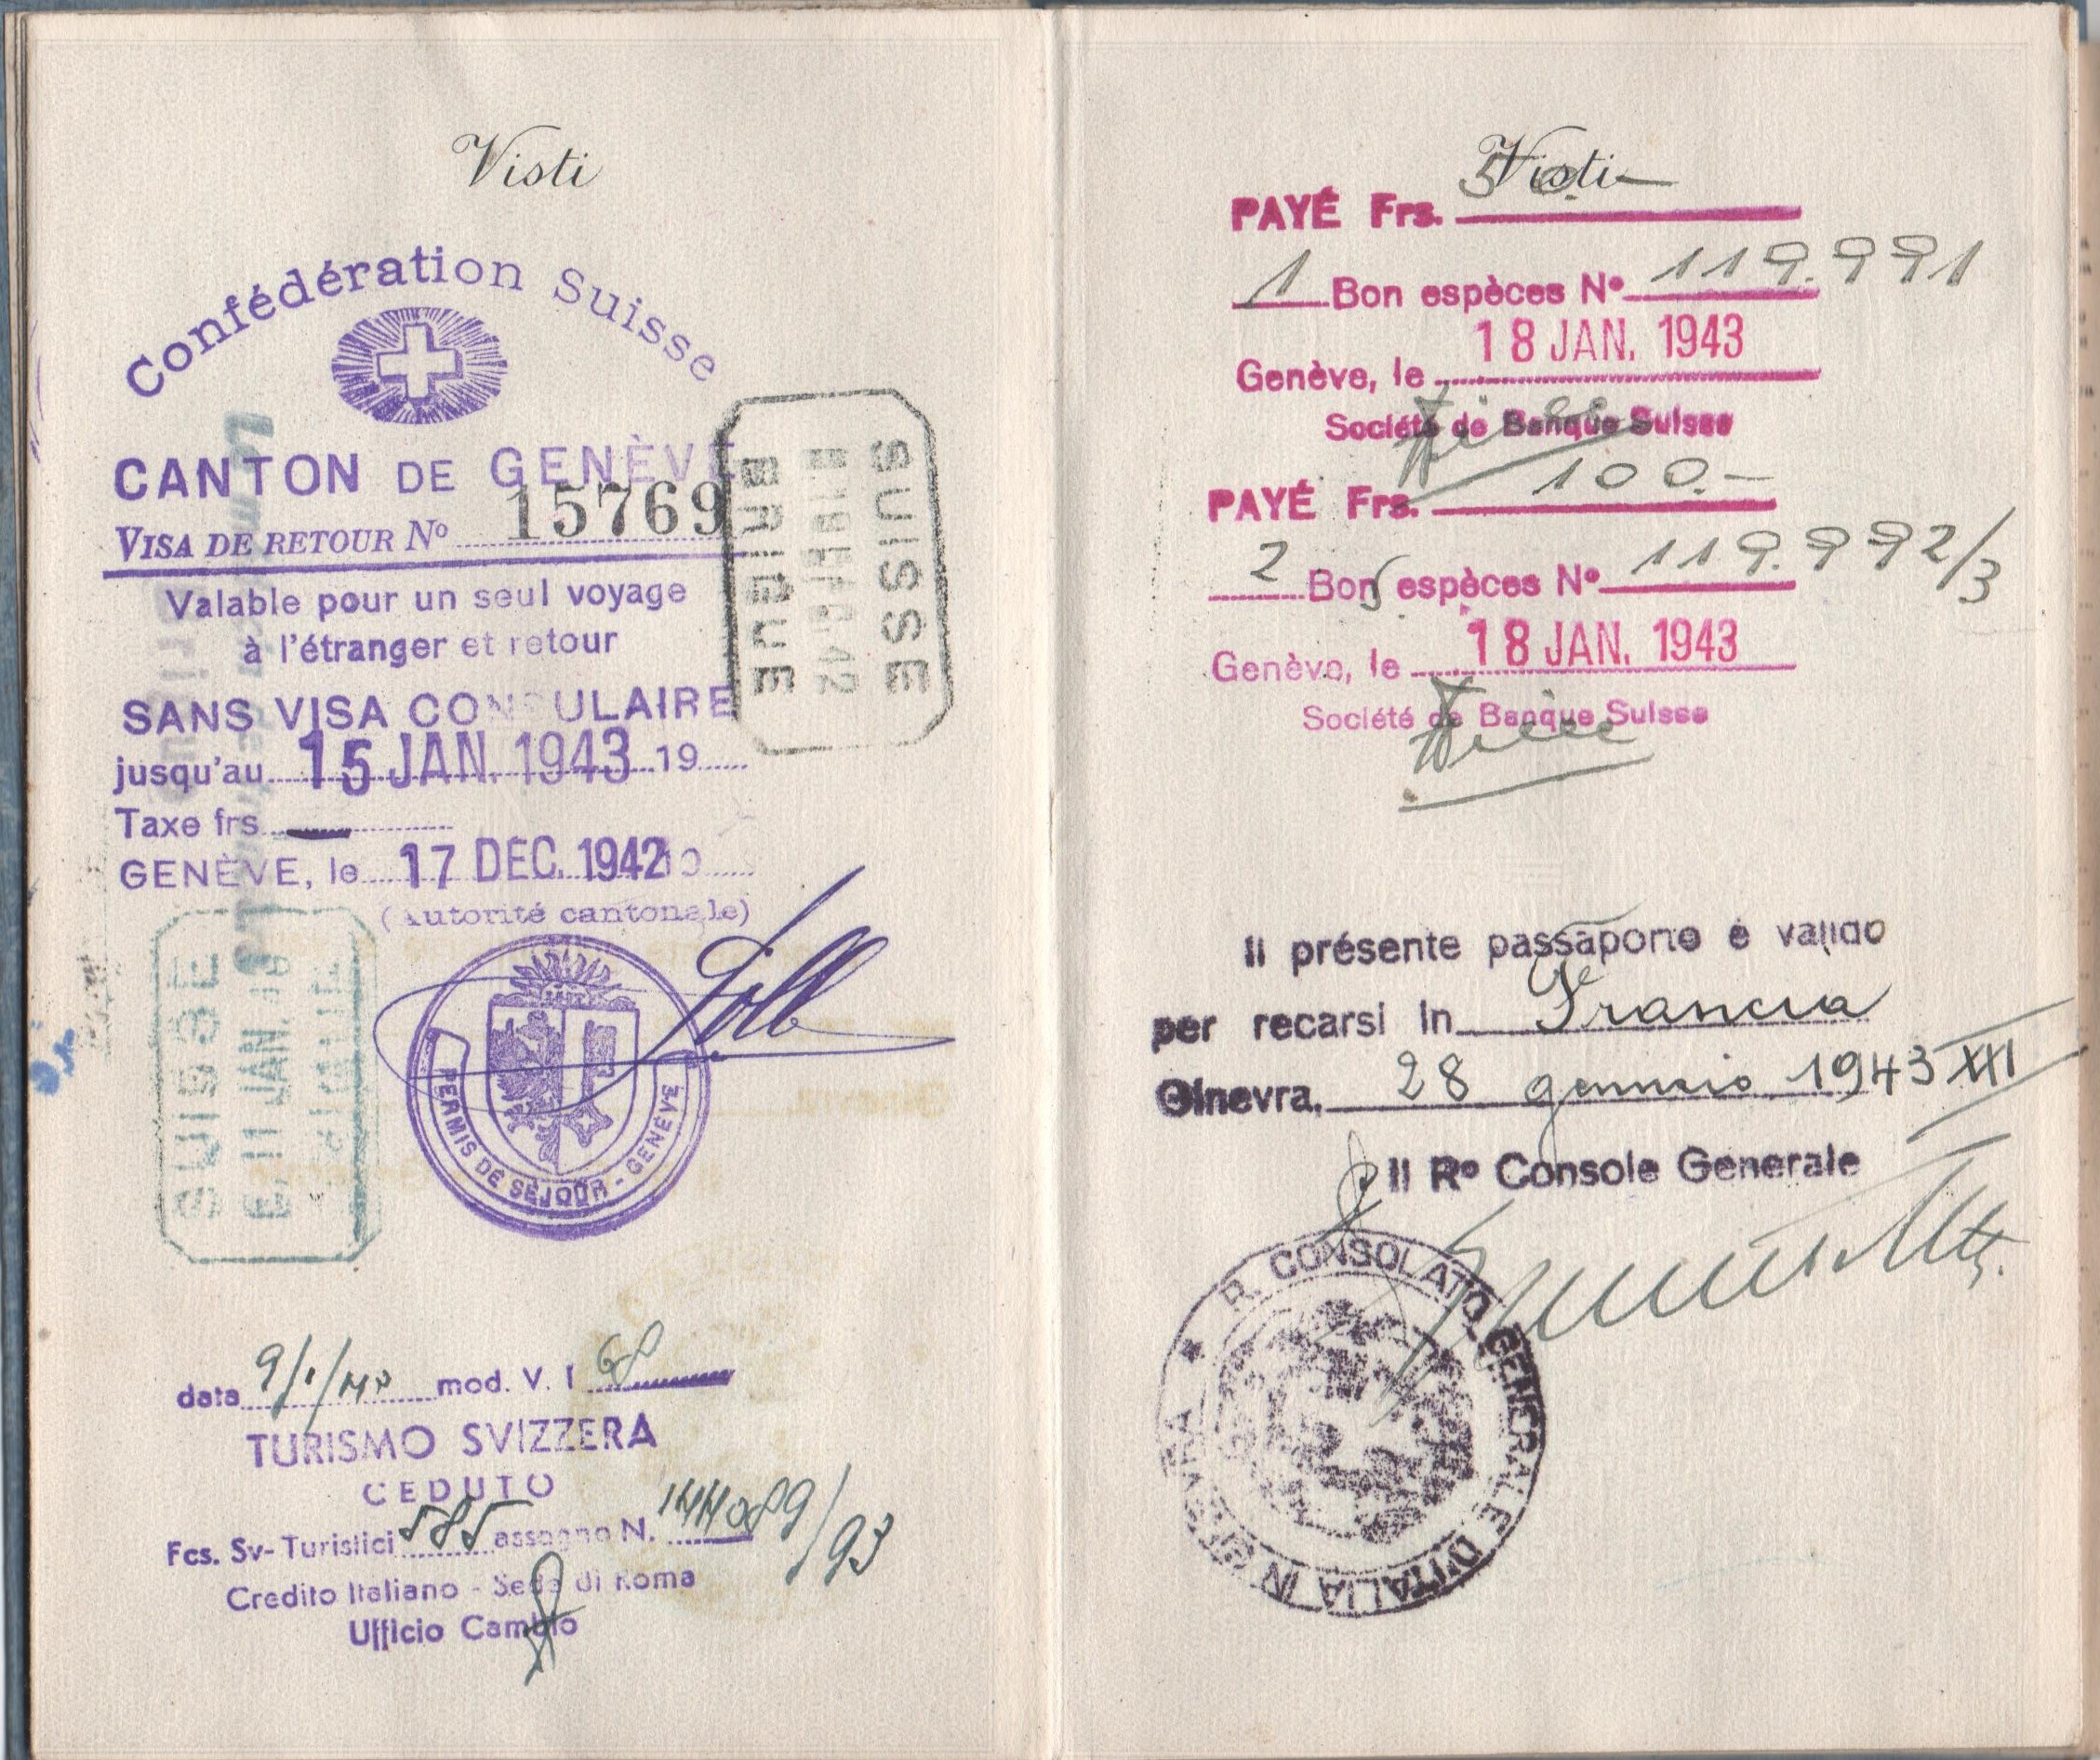 Visti
Confédération Suisse
CANTON DE GENÈVE
VISA DE RETOUR Nº 15769
Valable pour un seul voyage
à l'étranger et retour
SANS VISA CONSULAIRE
jusqu'au 15 JAN. 1943 19
Taxe frs
GENÈVE, le 17 DEC. 1942
(Autorité cantonale)
PERMIS DE SÉJOUR - GENÈVE
SUISSE
BRIGUE
SUISSE
E. 11 JAN.
data mod. V. I
TURISMO SVIZZERA
CEDUTO
Fcs. Sv-Turistici 585 assegno N. 144089/93
Credito Italiano - Sede di Roma
Ufficio Cambio
Visti
PAYÉ Frs. 50.-
1 Bon espèces Nº 119.991
18 JAN. 1943
Genève, le
Société de Banque Suisse
PAYÉ Frs. 100.-
2 Bons espèces Nº 119.992/3
Genève, le 18 JAN. 1943
Société de Banque Suisse
Il présente passaporto é valido
per recarsi in Francia
Ginevra, 28 gennaio 1943 XXI
Il Rº Console Generale
R. CONSOLATO GENERALE D'ITALIA IN GINEVRA